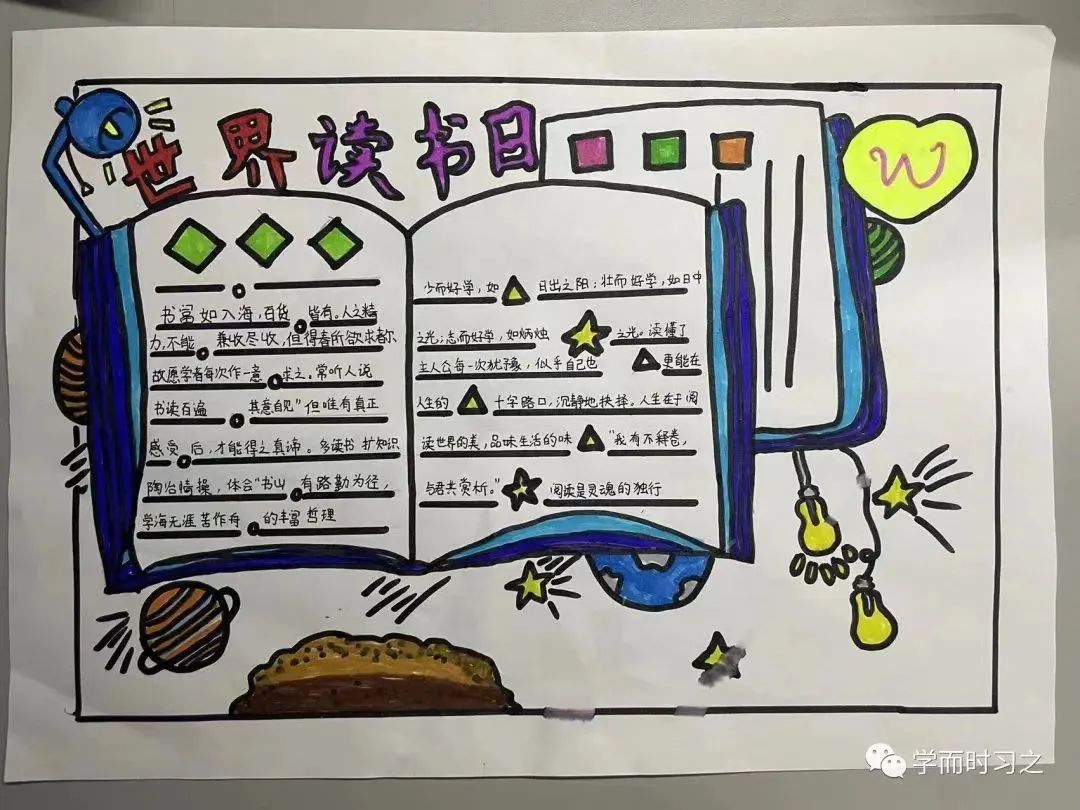 世界读书日
W
书富如入海，百货皆有。人之精
力，不能兼收尽收，但得春所欲求者尔
故愿学者每次作一意求之。常听人说
书读百遍其意自见”但唯有真正
感受后，才能得之真谛。多读书扩知识
陶冶情操，体会“书山有路勤为径，
学海无涯苦作舟的丰富哲理
少而好学，如日出之阳；壮而好学，如日中
之光；志而好学，如炳烛之光。读懂了
主人公每一次犹豫，似乎自己也更能在
人生的十字路口，沉静地抉择。人生在于阅
读世界的美，品味生活的味“我有不释卷，
与君共赏析。”阅读是灵魂的独行
学而时习之